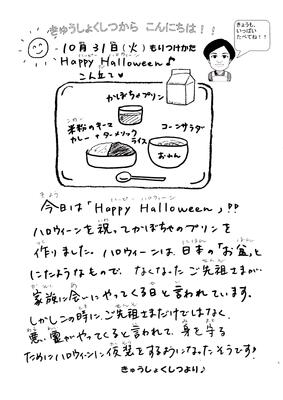 きゅうしょくしつから こんにちは！！
きょうも、
いっぱい
たべてね！！
10月31日(火) もりつけかた
Happy Halloween♪
こん立て♥
かぼちゃプリン
米粉のキーマ
カレー + ターメリック
ライス
コーンサラダ
おわん
今日は「Happy Halloween」!!
ハロウィーンを祝ってかぼちゃのプリンを
作りました。ハロウィーンは、日本の「お盆」と
にたようなもので、なくなったご先祖さまが、
家族に会いにやってくる日と言われています。
しかしこの時に、ご先祖さまだけではなく、
悪い霊がやってくると言われて、身を守る
ためにハロウィーンに仮装をするようになったそうです!
きゅうしょくしつより♪